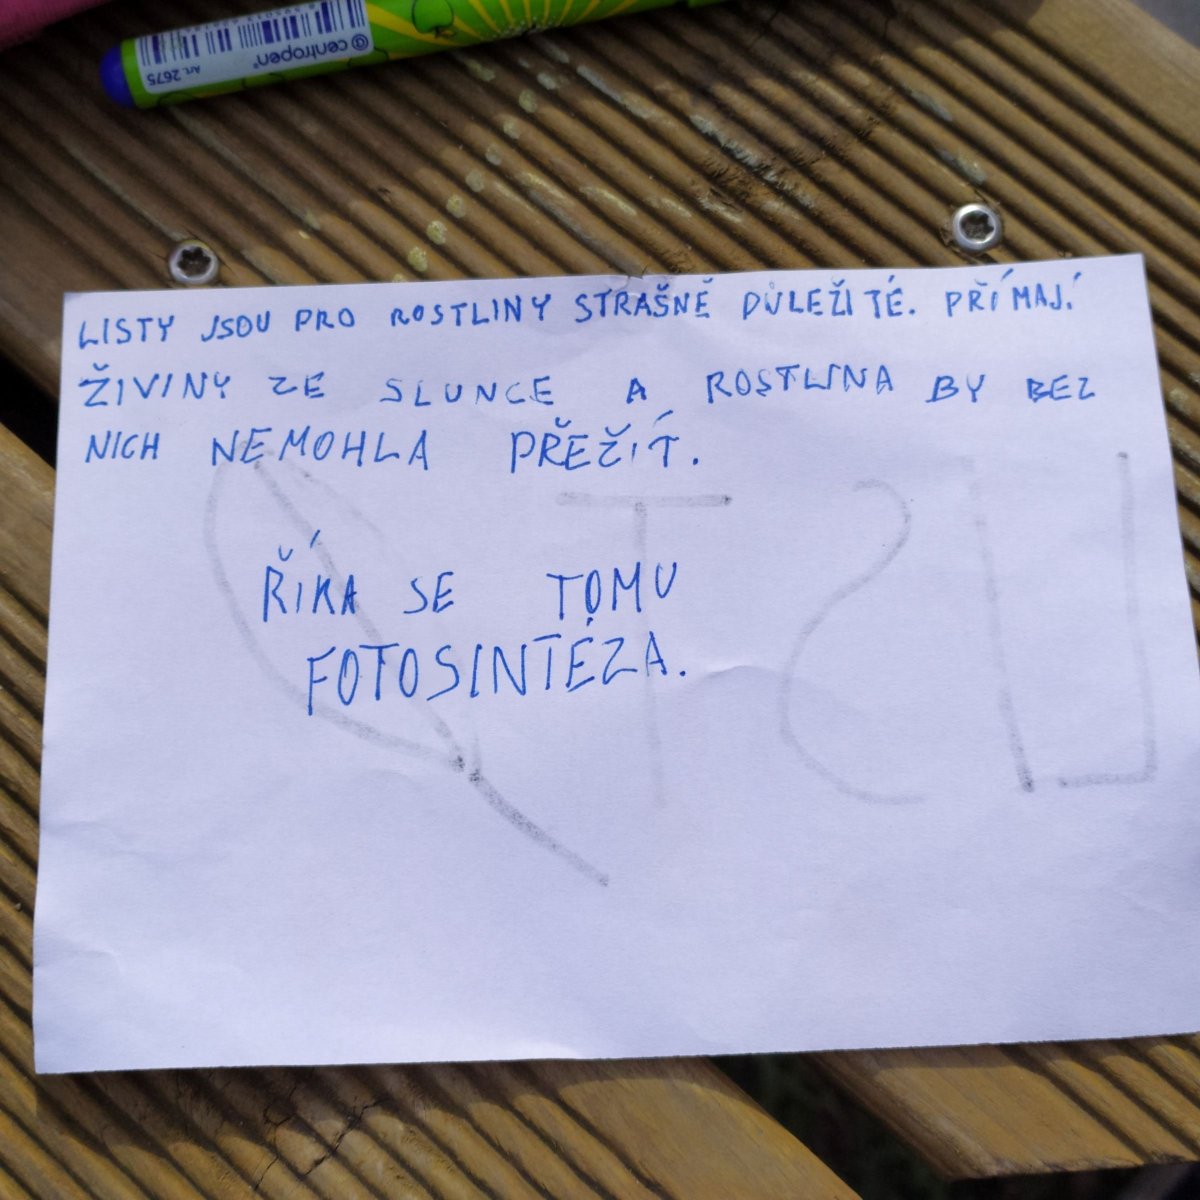 centropen®
Art. 2675
LISTY JSOU PRO ROSTLINY STRAŠNĚ DŮLEŽITÉ. PŘÍMAJÍ
ŽIVINY ZE SLUNCE A ROSTLINA BY BEZ
NICH NEMOHLA PŘEŽÍT.
ŘÍKÁ SE TOMU
FOTOSINTÉZA.
LIST